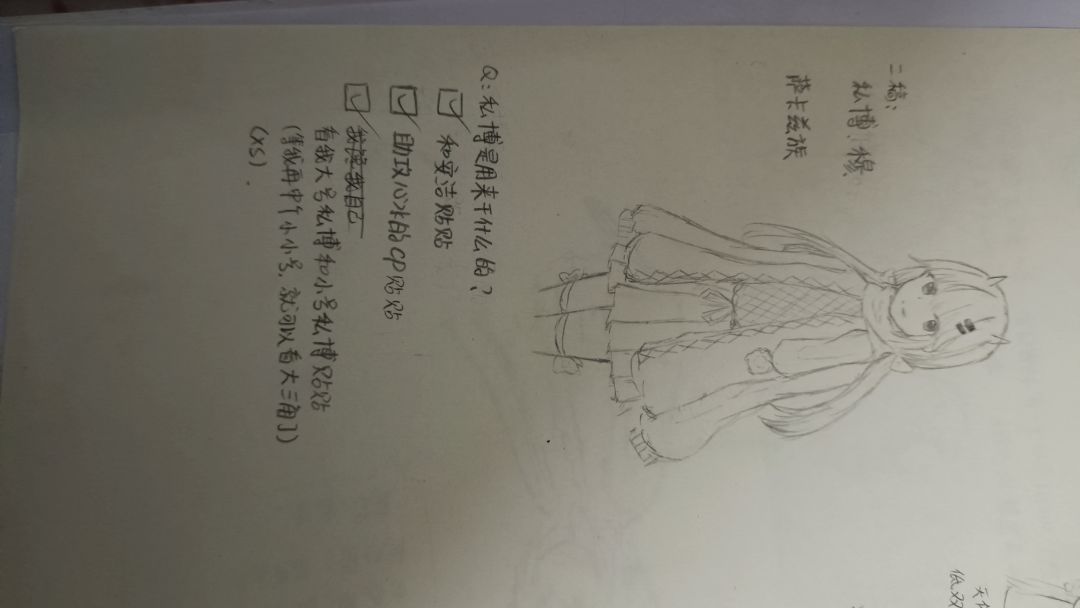 二稿:
私博:穆
萨卡兹族
Q:私博是用来干什么的?
和安洁贴贴
助攻心水的cp贴贴
我擦我自己
看我大号私博和小号私博贴贴
(等我再申个小小号,就可以看大三角了)
(xs).
低双